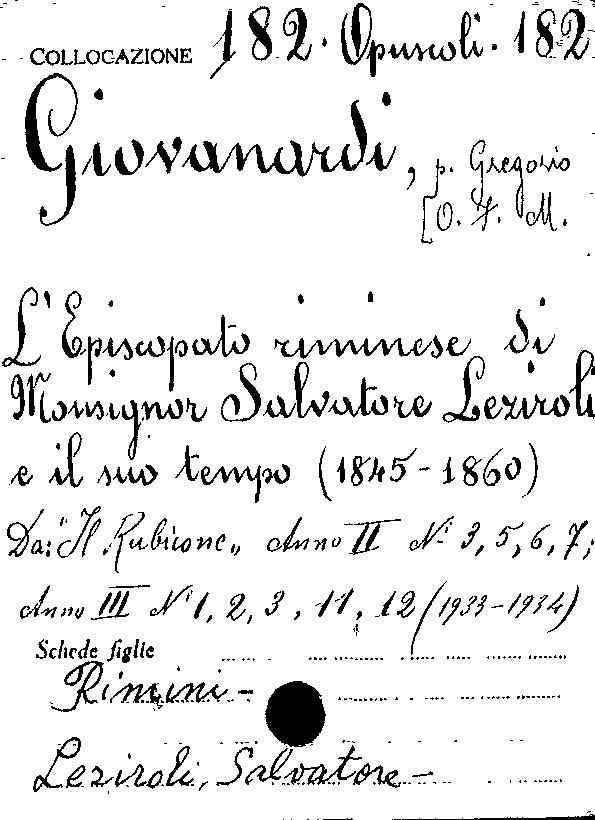 COLLOCAZIONE 182. Opuscoli. 182
Giovanardi, p. Gregorio
[O. F. M.
L'Episcopato riminese di
Monsignor Salvatore Leziroli
e il suo tempo (1845-1860)
Da: "Il Rubicone„ Anno II Ni 3, 5, 6, 7;
Anno III Ni 1, 2, 3, 11, 12 (1933-1934)
Schede figlie
Rimini -
Leziroli, Salvatore -